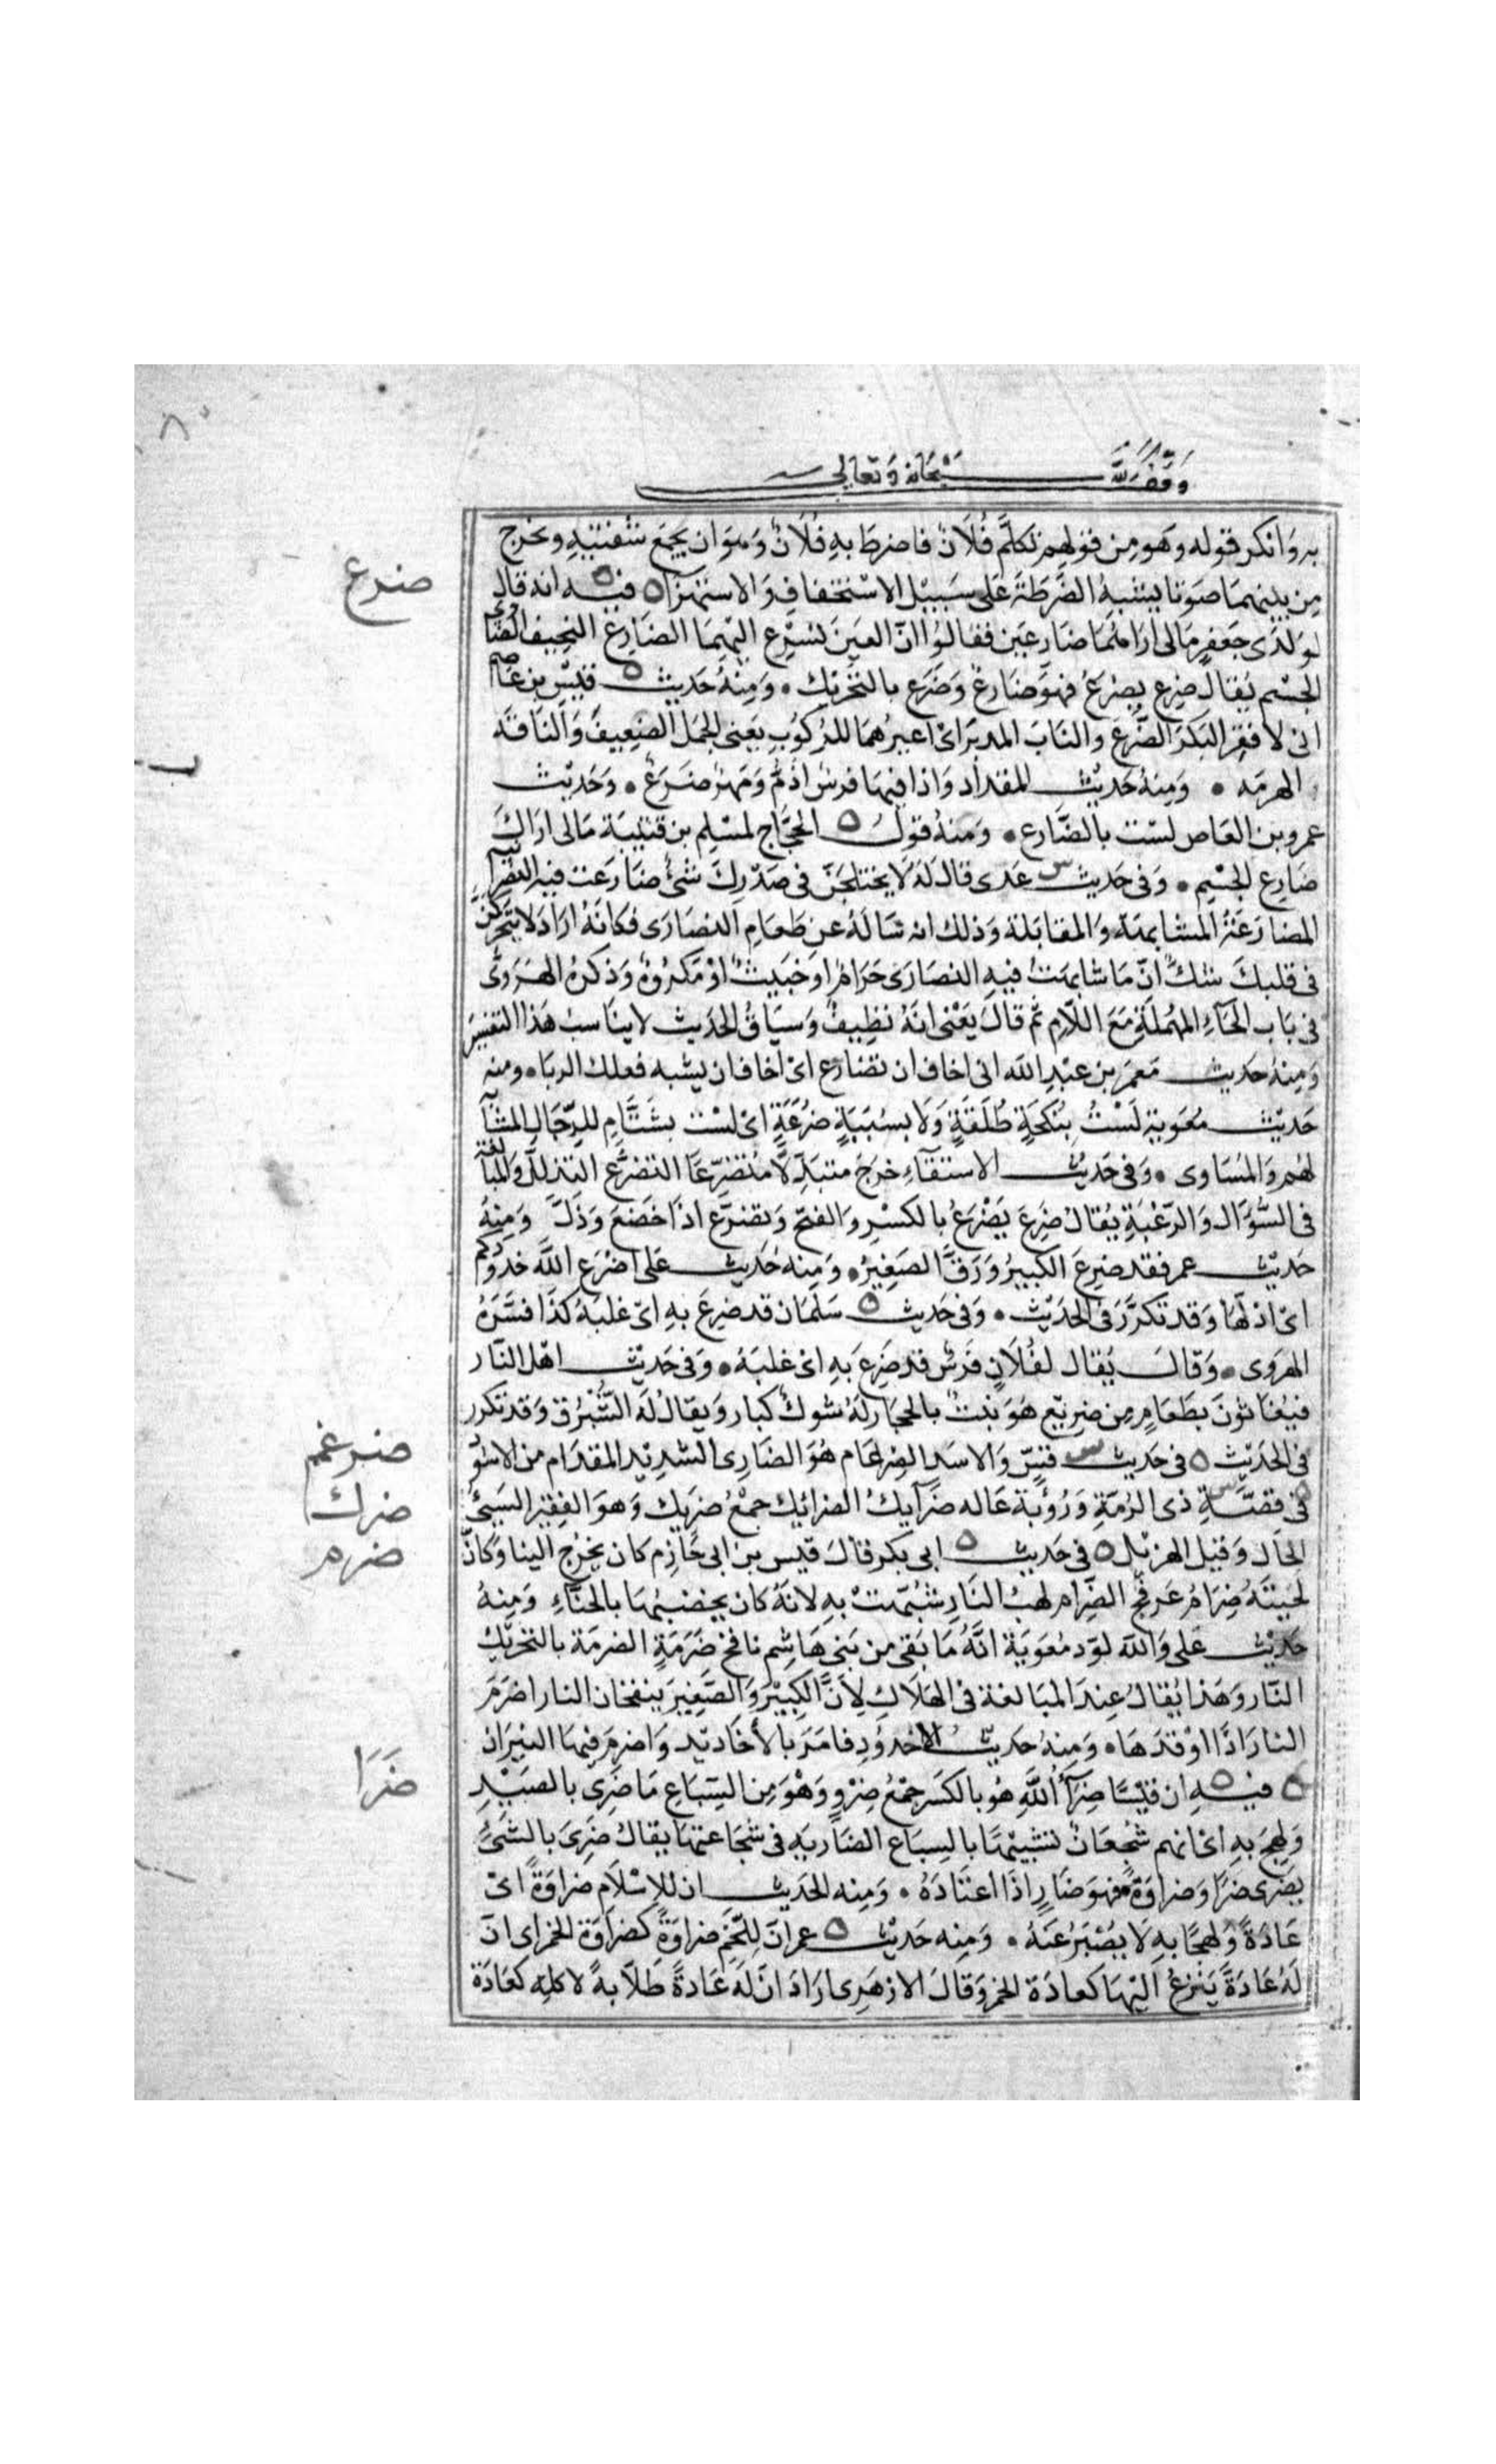 وقف لله سبحانه وتعالى
به وانكر قوله وهو من قولهم تكلم فُلَانٌ فاضرطَ بهِ فُلَانٌ وَهوَ ان يجمَع شفتيهِ ويخرج
ضرع
مِن بينهمَا صَوتا يشبهُ الضَّرطَةَ عَلى سَبيْل الاسْتخفافِ وَالاستهزا ه فيه انه قال
لوَلدَى جَعفرٍ مَالى ارَاهُمَا ضَارِعَين فقالوُا انّ العَينَ تسْرِع اليْهمَا الضَارِعُ النحيفُ الضَاوى
الجسْم يُقال ضرِع يضْرَعُ فهوَ ضَارِعٌ وَضَرَع بالتحْرِيك ۰ وَمِنْهُ حَديث قيسْ بن عَاصم
انى لافقِر البَكرَ الضَّرَعَ والنَابَ المدبرَ اىْ اعيرُهُمَا للرُكوُبِ يَعنى الجمَل الضعِيفَ وَالنَاقة
الهرمَه ۰ وَمِنهُ حَديْث المقداد وَاذا فيهَا فرسٌ اذمُّ وَمَهرٌ ضَرَعٌ ۰ وَحَديْث
عمرو بن العَاص لسْت بالضَّارع ۰ وَمنهُ قولُ الحجَّاج لمسْلِم بن قتيبَة مَالى ارَاكَ
ضَارِع الجسْمِ ۰ وَفى حَديث عَدى قالَ لَهُ لَا يختلجَنَّ فى صَدْرِكَ شئٌ ضَارَعتَ فيه النصرانية
المضارَعَةُ المشابَهَة وَالمقابَلة وَذلك انه سَالهُ عن طَعَامِ النصَارَى فكانهُ ارَادَ لا يتحرّكنَّ
فى قلبكَ شكٌ انّ مَا شابهتَ فيهِ النصَارَى حَرَامٌ اوخبَيثٌ اوْمَكروُهٌ وَذكرهُ الهَرَوىُّ
فى بَاب الحَاءِ المهْملَةِ مَعَ اللاّمِ ثم قالَ يَعْنى انهُ نظِيفٌ وَسيَاقُ الحَديث لا يناسبُ هَذا التفسِيرَ
وَمِنهُ حَديث مَعمَر بن عَبْدِ الله انى اخاف ان تضَارع اىْ اخافُ ان يشبه فعلك الربَا ۰ ومنه
حَديْث مُعَوية لَسْتُ بنُكَحَةٍ طُلَقَةٍ وَلَا بسُبَبَةٍ ضُرَعَةٍ اىْ لسْت بشَتَّامٍ للرِّجَالِ المشابه
لهُم وَالمُسَاوى ۰ وَفى حَديْث الاستسقاءِ خرَجَ متبَذِّلاً مُتضَرِّعًا التضرُّع التذلل وَالمبالغة
فى السُّؤَال وَالرَّغبَةِ يُقالُ ضرِعَ يَضْرَعُ بالكسْرِ وَالفتحِ وَتضرَّع اذا خَضعَ وَذَلَّ وَمِنهُ
حَديْث عمر فقد ضرِعَ الكبيرُ وَرَقَّ الصَغِيْرُ ۰ وَمِنهُ حَديْث عَلى اضْرَع اللهُ خدُودَكم
اىْ اذلّهَا وَقد تكرَّرَ فى الحَديْث ۰ وَفى حَديث سَلمَان قد ضرِعَ بهِ اىْ غلبَهُ كذَا فسَّرَهُ
الهرَوى ۰ وَقالَ يُقال لفُلَانٍ فَرسٌ قد ضرِعَ بهِ اىْ غلبَهُ ۰ وَفى حَديْث اهْل النَار
فيُغاثوُنَ بطَعَامٍ مِن ضرِيْعٍ هُوَ نبتٌ بالحجَاز لهُ شوكٌ كبار وَيقالُ لهُ الشّبْرق وَقد تكرر
ضرغم
فى الحَديْث ه فى حَديث قسٍّ وَالاسَد الضِرغام هُوَ الضَارِى الشدِيْد المقدَام من الاسُوْد
ضرك
فى قصَّةِ ذى الرُمّةِ وَرُؤبَة عَاله ضرَآيكُ الضرائيك جمْعُ ضرَيك وَهوَ الفقِير السَيئُ
ضرم
الحَال وَقيل الهزيْل ه فى حَديث ابى بكر قالَ قيس بن ابى حَازِم كان يخرُج الينا وَكأنَّ
لحْيتَهُ ضِرَامُ عَرفجٍ الضِّرام لهبُ النَارِ شبّهتْ بهِ لانهُ كان يخضبُهَا بالحنَّاءِ وَمنهُ
حَديْث عَلى وَالله لودَّ مُعَويَة انَّهُ مَا بَقى من بَنى هَاشِم نافخ ضَرَمَةٍ الضرمَة بالتحريْك
النَّار وَهَذا يُقالُ عِندَ المبَالغة فى الهَلاكِ لِاَنّ الكِبيْرَ وَالصَّغِيرَ ينفخان النار اضرَمَ
النارَ اذَا اوْقدَهَا ۰ وَمِنهُ حَديث الاخدوُدِ فامَرَ بالأخَاديد وَاضرمَ فيهَا النيرَان
ضرا
ه فيهِ ان قيْسًا ضِرَآءُ اللَّهِ هُو بالكَسر جمْعُ ضرْوٍ وَهْوَ مِن السّبَاعِ مَا ضَرِىَ بالصَيْدِ
وَلهجَ بهِ اىْ انهم شُجعَانٌ تشبيْهًا بالسِبَاع الضَارِيَهِ فى شجَاعتهَا يقالُ ضَرِىَ بالشَىِّ
يضرَى ضرَا وَضراوَةً فهوَ ضَارٍ اذَا اعتَادَهُ ۰ وَمِنه الحَديث ان للاسْلَام ضرَاوَةً اىْ
عَادَةً وَلهجًا بهِ لَا يُصْبَرُ عَنهُ ۰ وَمِنه حَديْث عمران لِلّحَمِ ضرَاوَةً كضرَاوَة الخمر اى انّ
لهُ عَادَةً يَنزعُ اليْهَا كعادَة الخمر وَقالَ الازهَرِى ارَادَ انّ لهُ عَادةً طَلاّبةً لاكله كعَادَة